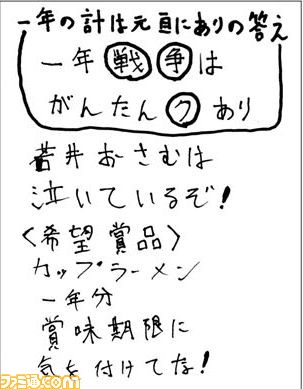 一年の計は元旦にありの答え
一年戦争は
がんたんクあり
蒼井おさむは
泣いているぞ!
〈希望賞品〉
カップラーメン
一年分
賞味期限に
気を付けてな!
ファミ通.com